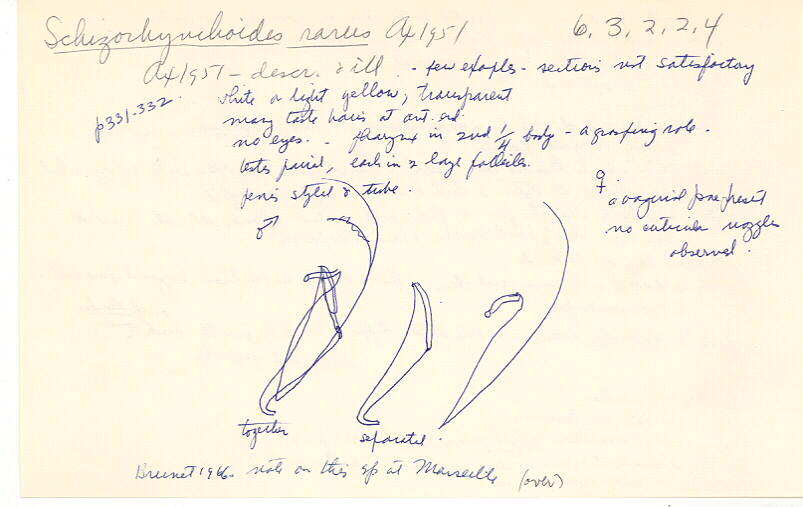 Schizorhynchoides rarus Ax 1951 6, 3, 2, 2, 4
Ax 1951 - descr. & ill. - few exaples - sections not satisfactory
p331-332
white or light yellow, transparent
many taste hairs at ant. end.
no eyes. - pharynx in 2nd 1/4 body - a grasping role.
testes paired, each in 2 large follicles.
penis stylet & tube.
♂
♀
a vaginal pore present
no cuticular nozzles
observed.
together
separated.
Brunet 1966 - note on this sp at Marseille (over)